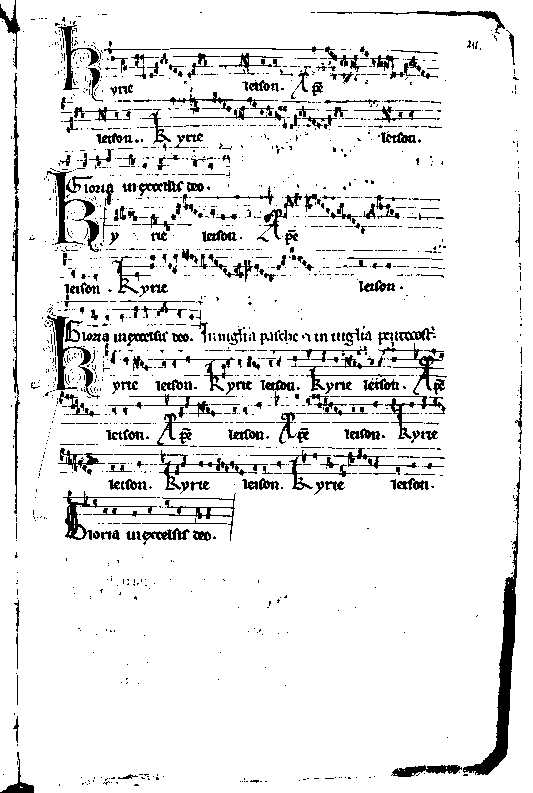 Kyrie leison. Xpē
leison. Kyrie leison.
Gloria in excelsis deo.
Kyrie leison. Xpē
leison. Kyrie leison.
Gloria in excelsis deo. In uigilia pasche ⁊ in uigilia pentecost
Kyrie leison. Kyrie leison. Kyrie leison. Xpē
leison. Xpē leison. Xpē leison. Kyrie
leison. Kyrie leison. Kyrie leison.
Gloria in excelsis deo.